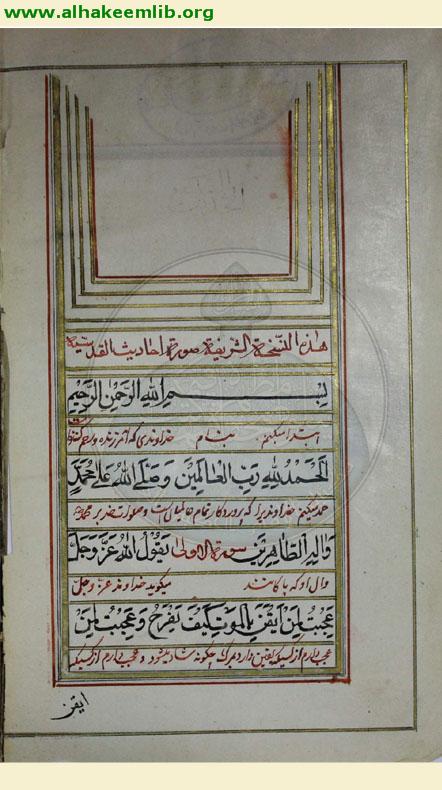 www.alhakeemlib.org
هذه النسخة الشريفة صورة احاديث القدسيّة
بِسْمِ اللهِ الرَّحْمٰنِ الرَّحِيْمِ
ابتدا میکنم بنام خداوندی که آمرزنده و رحم کننده
اَلْحَمْدُ لِلّٰهِ رَبِّ الْعَالَمِيْنَ وَصَلَّى اللهُ عَلٰى مُحَمَّدٍ
حمد میکنم خداوندیرا که پروردگار تمام عالمیان است و صلوات خدا بر محمد
وَاٰلِهِ الطَّاهِرِيْنَ سورة الاولى يَقُوْلُ اللهُ عَزَّ وَجَلَّ
وال او که پاکانند میکوید خداوند عز و جل
عَجِبْتُ لِمَنْ اَيْقَنَ بِالْمَوْتِ كَيْفَ يَفْرَحُ وَعَجِبْتُ لِمَنْ
عجب دارم از کسیکه یقین دارد بمرک چکونه شاد میشود و عجب دارم از کسیکه
ايقن